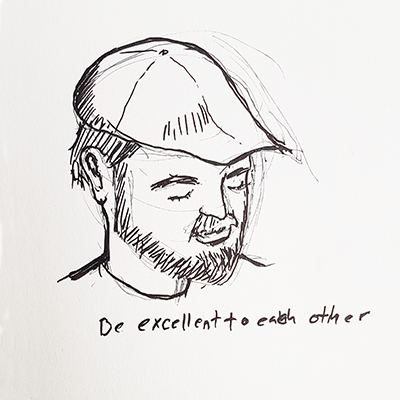 Be excellent to each other